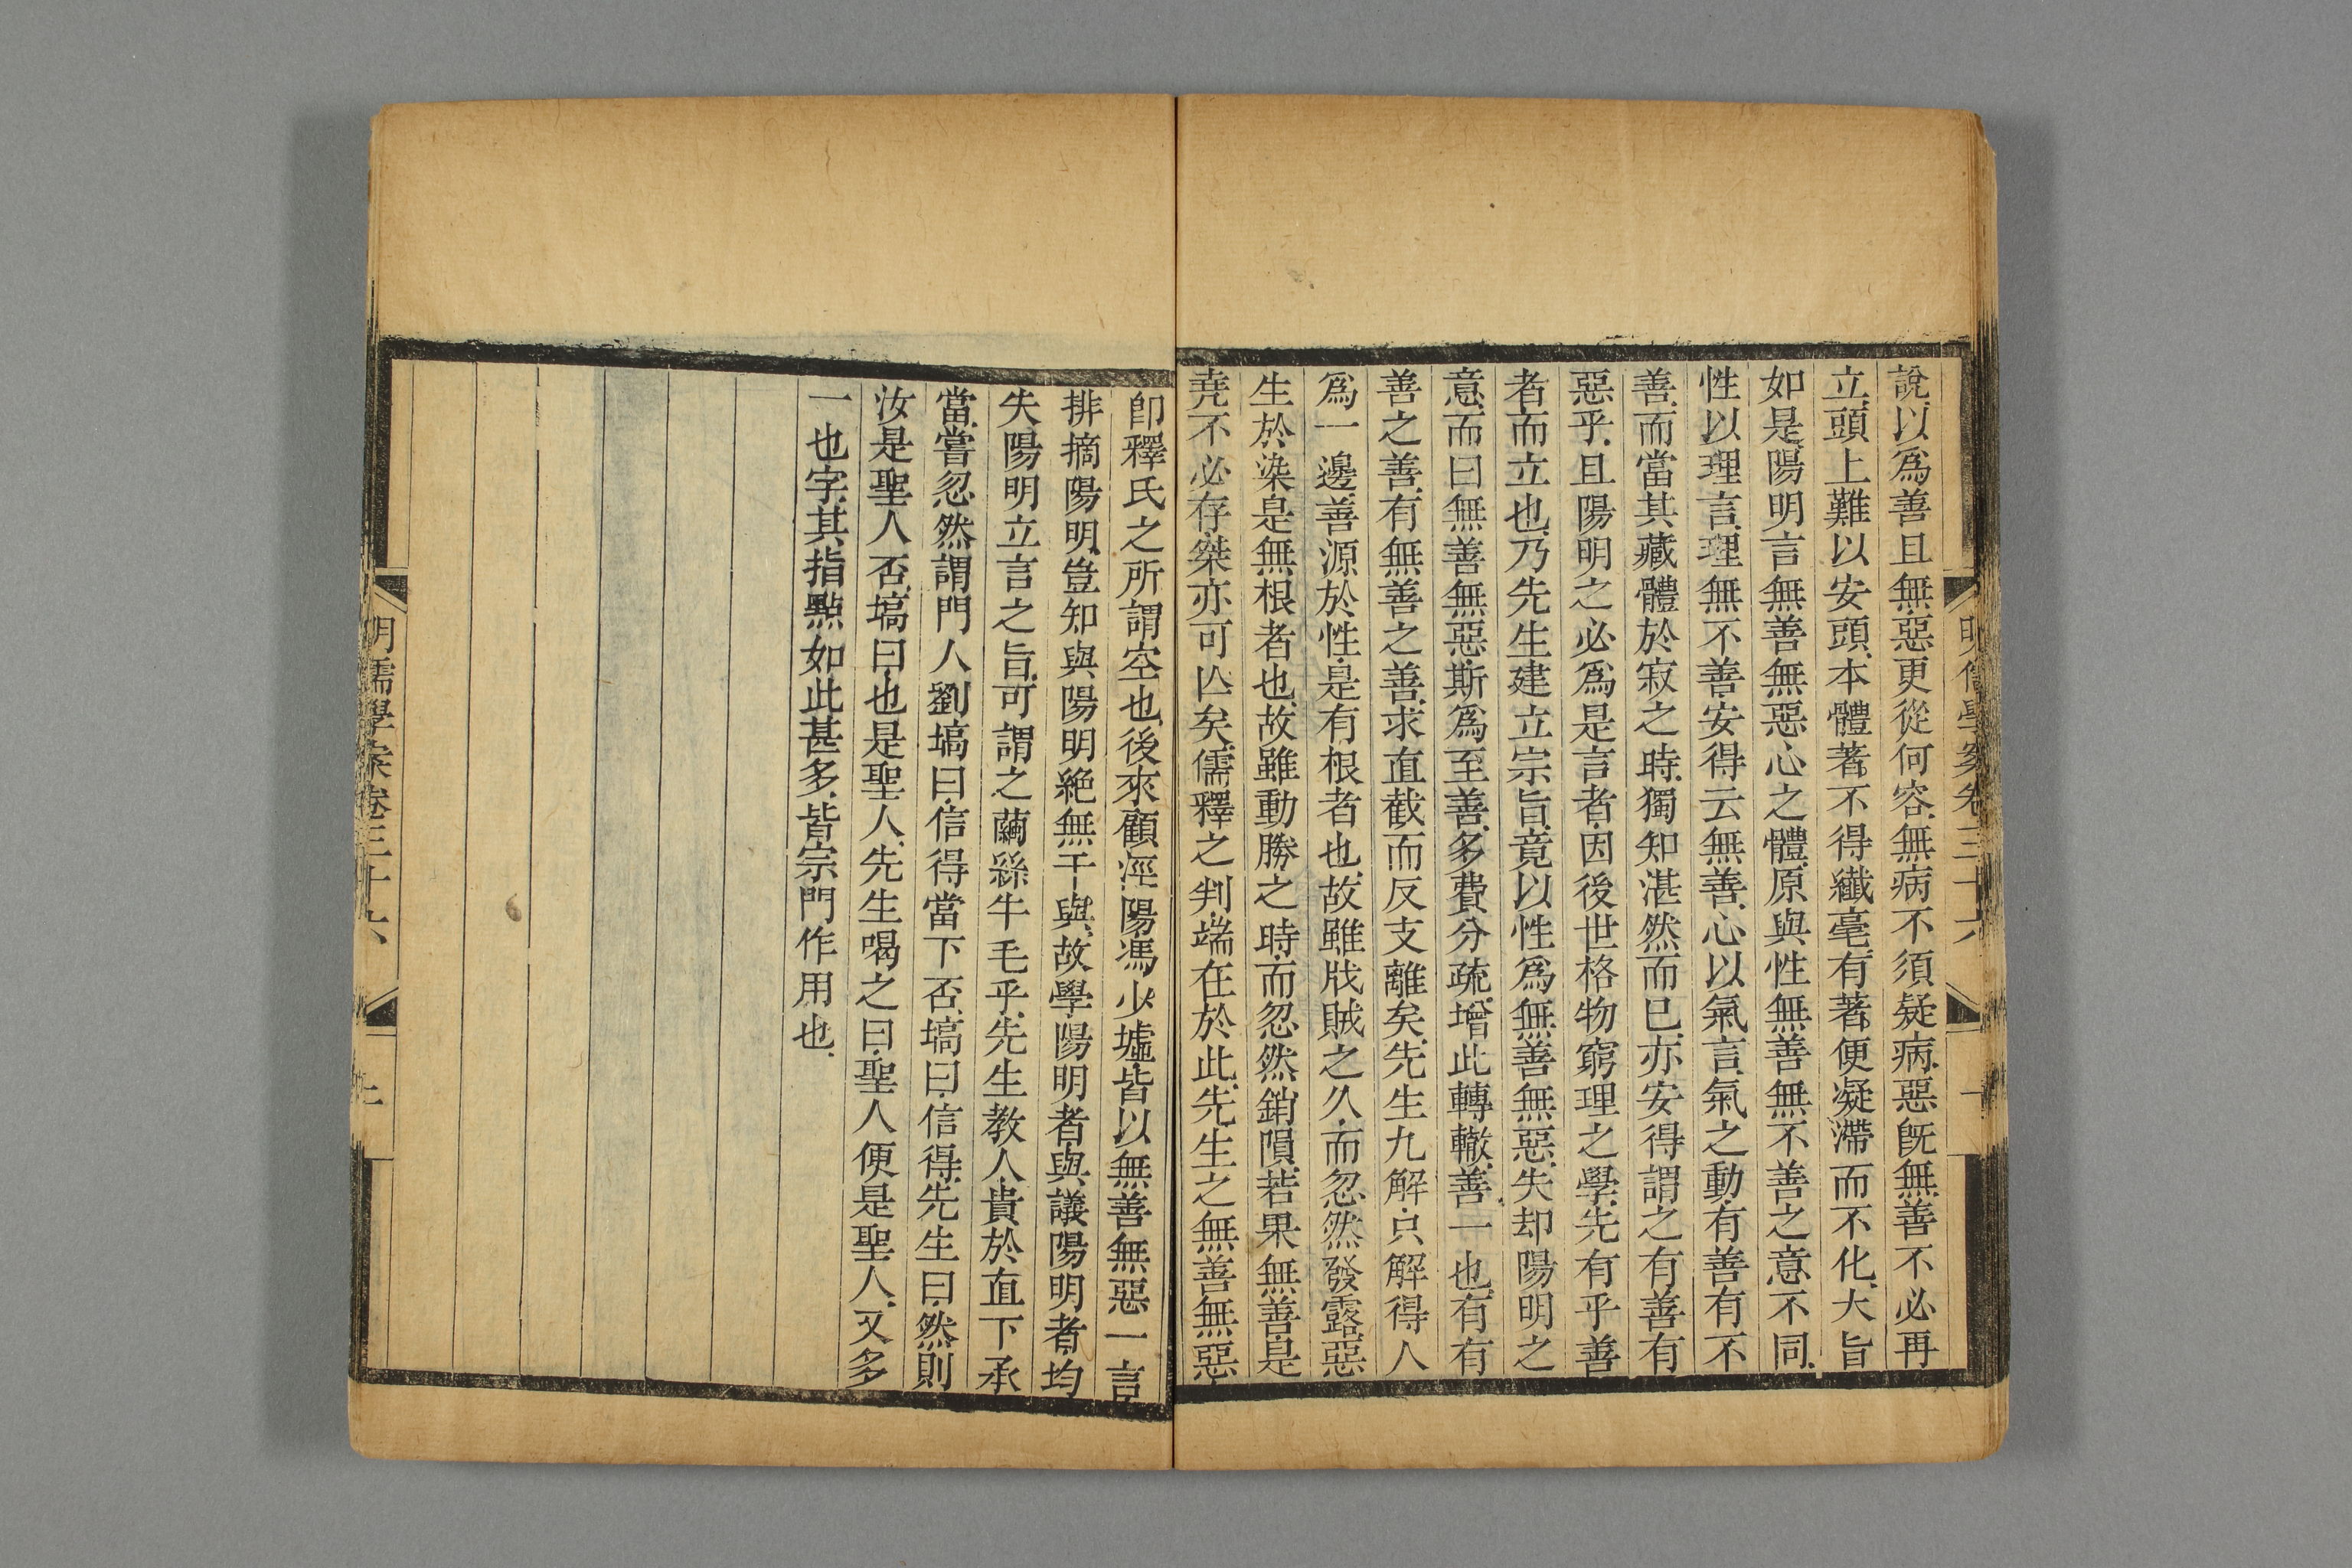 明儒學案卷三十六
說以爲善且無惡更從何容無病不須疑病惡旣無善不必再
立頭上難以安頭本體著不得纖毫有著便凝滯而不化大旨
如是陽明言無善無惡心之體原與性無善無不善之意不同
性以理言理無不善安得云無善心以氣言氣之動有善有不
善而當其藏體於寂之時獨知湛然而已亦安得謂之有善有
惡乎且陽明之必爲是言者因後世格物窮理之學先有乎善
者而立也乃先生建立宗旨竟以性爲無善無惡失却陽明之
意而曰無善無惡斯爲至善多費分疏增此轉轍善一也有有
善之善有無善之善求直截而反支離矣先生九解只解得人
爲一邊善源於性是有根者也故雖戕賊之久而忽然發露惡
生於染是無根者也故雖動勝之時而忽然銷隕若果無善是
堯不必存桀亦可亾矣儒釋之判端在於此先生之無善無惡
卽釋氏之所謂空也後來顧涇陽馮少墟皆以無善無惡一言
排摘陽明豈知與陽明絶無干與故學陽明者與議陽明者均
失陽明立言之旨可謂之繭絲牛毛乎先生教人貴於直下承
當嘗忽然謂門人劉塙曰信得當下否塙曰信得先生曰然則
汝是聖人否塙曰也是聖人先生喝之曰聖人便是聖人又多
一也字其指點如此甚多皆宗門作用也
明儒學案卷三十六